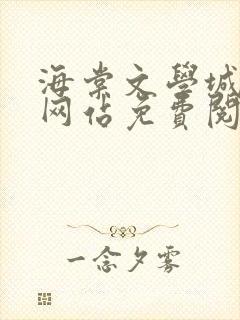 海棠文學城
网佔免費閱
一念夕雾